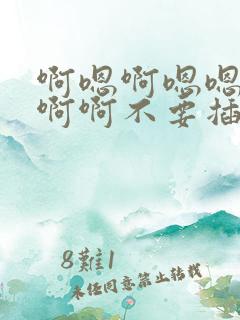 啊嗯啊嗯嗯
啊啊不要插
8難1
未经同意禁止转载